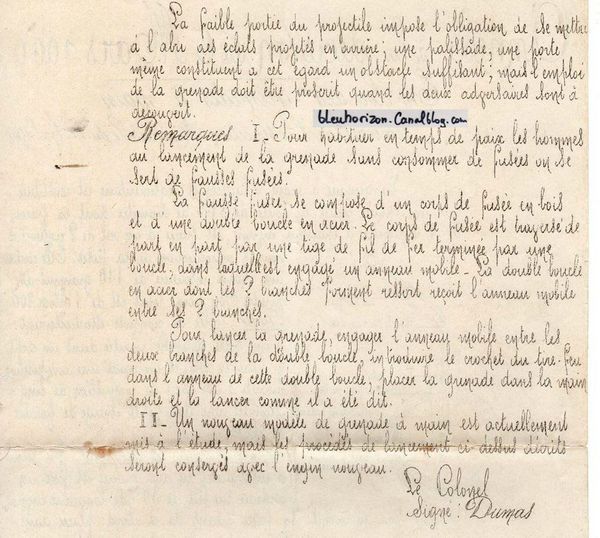 La faible portée du projectile impose l'obligation de se mettre
à l'abri des éclats projetés en arrière; une palissade, une porte
même constituent à cet égard un obstacle suffisant, mais l'emploi
de la grenade doit être proscrit quand les deux adversaires sont à
découvert.
bleuhorizon.Canalblog.com
Remarques I_ Pour habituer en temps de paix les hommes
au lancement de la grenade sans consommer de fusées on se
sert de fausses fusées.
La fausse fusée se compose d'un corps de fusée en bois
et d'une double boucle en acier. Le corps de fusée est traversé de
part en part par une tige de fil de fer terminée par une
boucle, dans laquelle est engagé un anneau mobile_ La double boucle
en acier dont les 2 branches forment ressort reçoit l'anneau mobile
entre ses 2 branches.
Pour lancer la grenade, engager l'anneau mobile entre les
deux branches de la double boucle, introduire le crochet du tire-feu
dans l'anneau de cette double boucle, placer la grenade dans la main
droite et la lancer comme il a été dit.
II_ Un nouveau modèle de grenade à main est actuellement
mis à l'étude, mais les procédés de lancement ci dessus décrits
seront conservés avec l'engin nouveau.
Le Colonel
Signé: Dumas